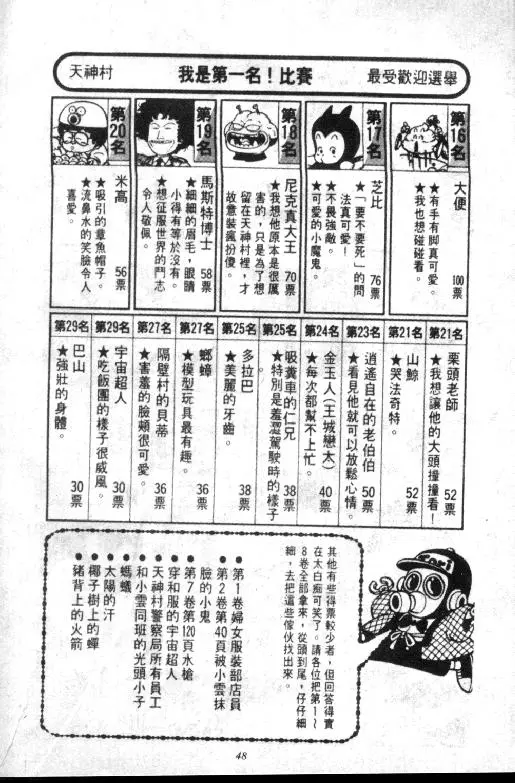 天神村
我是第一名！比賽
最受歡迎選舉
第16名
大便
100票
★有手有腳真可愛。
★我也想碰碰看。
第17名
芝比
76票
★「要不要死」的問
法真可愛！
★不畏強敵。
★可愛的小魔鬼。
第18名
尼克真大王
70票
★我想他原本是很厲
害的，只是為了想
留在天神村裡，才
故意裝瘋扮傻。
第19名
馬斯特博士
58票
★細細的眉毛，眼睛
小得有等於沒有。
★想征服世界的鬥志
令人敬佩。
第20名
米高
56票
★吸引的章魚帽子。
★流鼻水的笑臉令人
喜愛。
第21名
栗頭老師
52票
★我想讓他的大頭撞撞看！
第21名
山鯨
52票
★哭法奇特。
第23名
逍遙自在的老伯伯
50票
★看見他就可以放鬆心情。
第24名
金玉人（王城戀太）
40票
★每次都幫不上忙。
第25名
吸糞車的仁兄
38票
★特別是羞澀駕駛時的樣子
第25名
多拉巴
38票
★美麗的牙齒。
第27名
螂蟑
36票
★模型玩具最有趣。
第27名
隔壁村的貝蒂
36票
★害羞的臉頰很可愛。
第29名
宇宙超人
30票
★吃飯團的樣子很威風。
第29名
巴山
30票
★強壯的身體。
其他有些得票較少者，但回答得實
在太白痴可笑了。請各位把第1～
8卷全部拿來，從頭到尾，仔仔細
細，去把這些傢伙找出來。
●第1卷婦女服裝部店員
●第2卷第40頁被小雲抹
臉的小鬼
●第7卷第120頁水槍
●穿和服的宇宙超人
●天神村警察局所有員工
●和小雲同班的光頭小子
●螞蟻
●太陽的汗
●椰子樹上的蟬
●豬背上的火箭
48